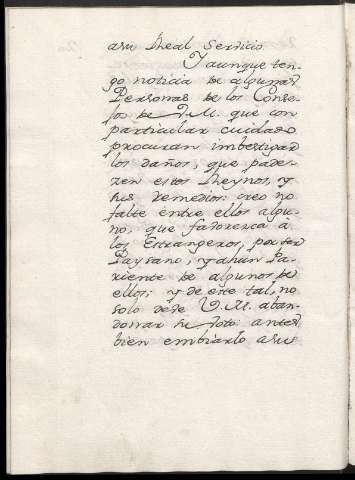 asu Rheal Servicio
Yaunque ten-
go noticia de algunas
Personas de los Conse-
jos de V.M. que con
particular cuidado
procuran imbestigar
los daños, que pade-
zen estos Rheynos, y
sus remedios: creo no
falte entre ellos algu-
no, que faborezca à
los Estrangeros, por ser
Paysano, y ahun Pa-
riente de algunos de
ellos; y de este tal, no
solo deve V.M. aban-
donar su Voto: antes
bien embiarlo asus